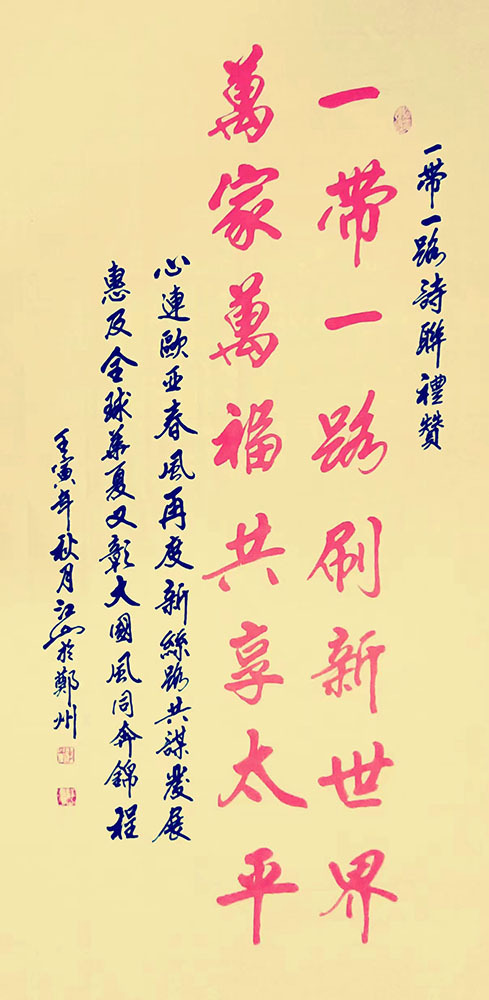 一帶一路詩聯禮贊
一帶一路刷新世界
萬家萬福共享太平
心連歐亞春風再度新絲路共謀發展
惠及全球華夏又彰大國風同奔錦程
壬寅年秋月江山於鄭州